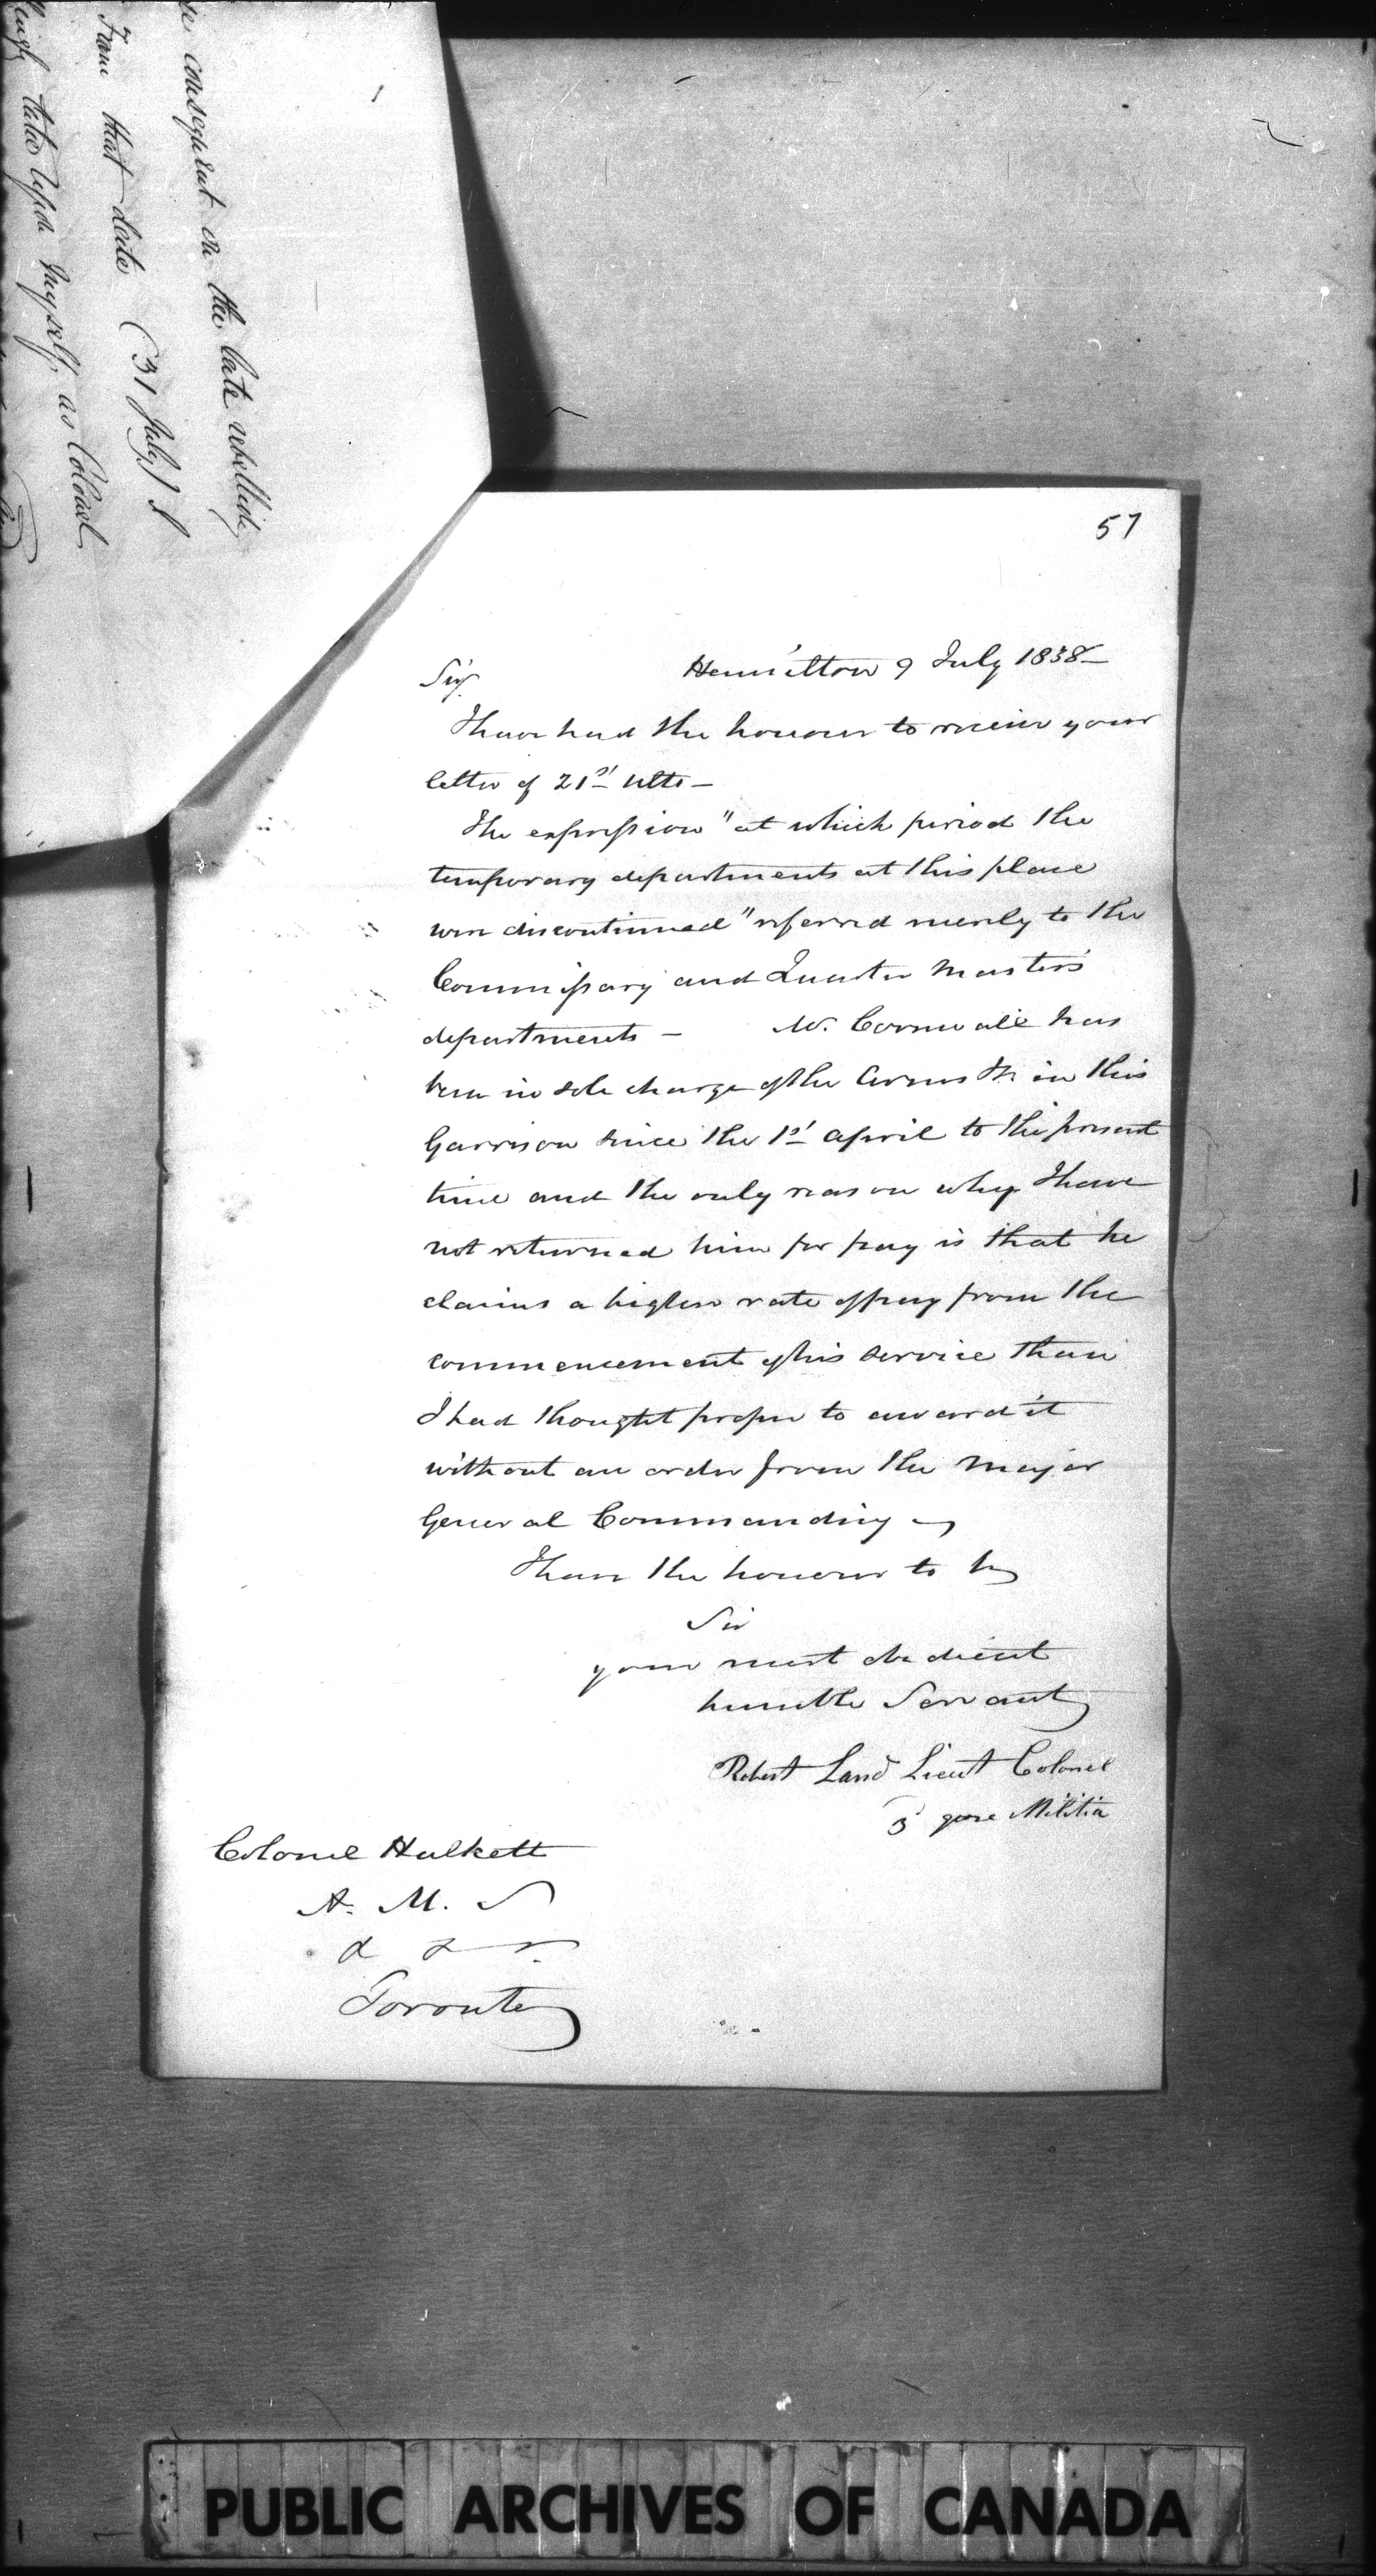 consequent on the late rebellion
From that date (31 July) I
taken upon myself as Colonel
57
Hamilton 9 July 1838
Sir
I have had the honour to receive your
letter of 21st ulto —
The expression "at which period the
temporary departments at this place
were discontinued" referred merely to the
Commissary and Quarter Master's
departments — Mr. Cornwall has
been in sole charge of the Arms &c in this
Garrison since the 1st April to the present
time and the only reason why I have
not returned him for pay is that he
claims a higher rate of pay from the
commencement of his service than
I had thought proper to award it
without an order from the Major
General Commanding —
I have the honour to be
Sir
your most obedient
humble Servant
Robert Land Lieut Colonel
3 gore Militia
Colonel Halkett
A. M. S
& & &.
Toronto
PUBLIC ARCHIVES OF CANADA